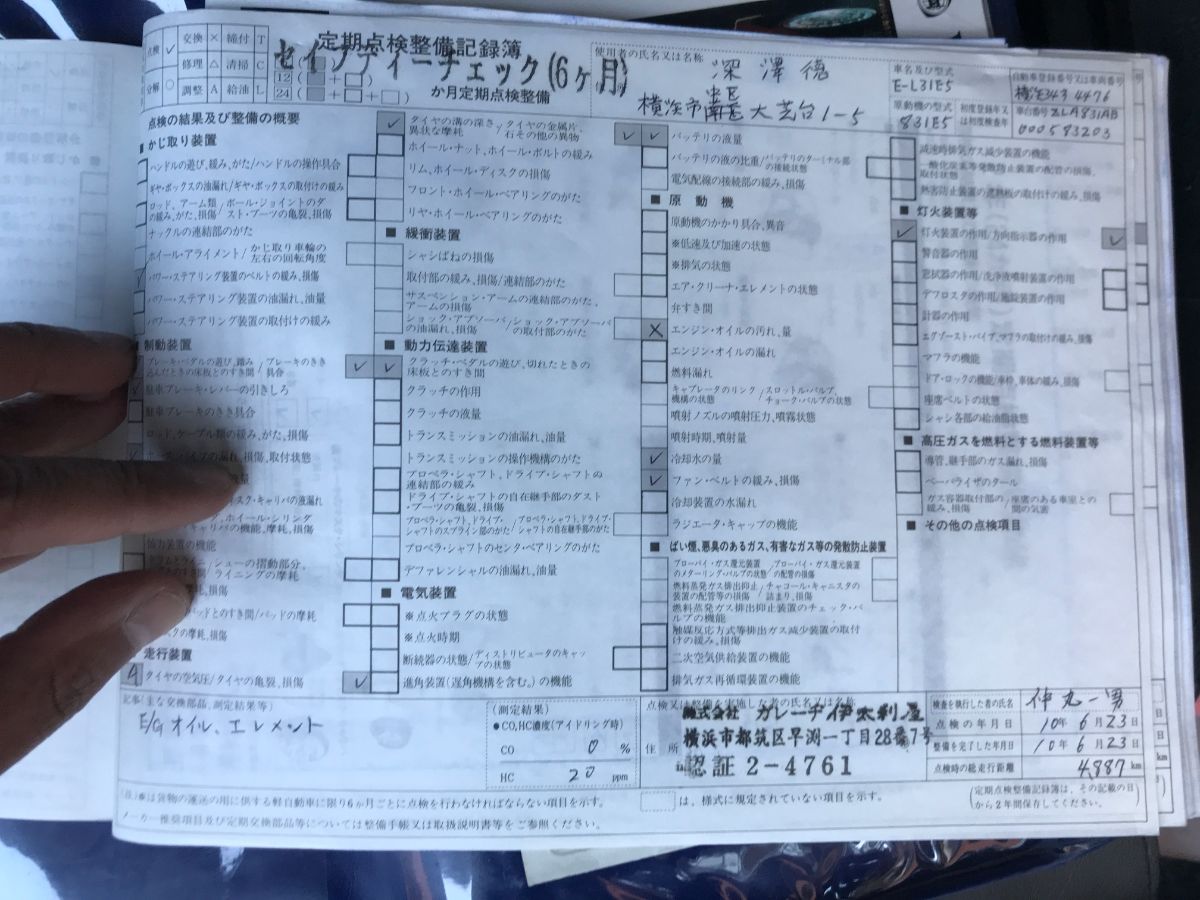 点検 ✓ 交換 × 締付 T
修理 △ 清掃 C
分解 ○ 調整 A 給油 L
定期点検整備記録簿
セイフティーチェック(6ヶ月)
12 ( + )
24 ( + + )
か月定期点検整備
使用者の氏名又は名称
深澤徳
大芝台1-5
車名及び型式
E-L31E5
自動車登録番号又は車両番号
横浜343 4476
原動機の型式
831E5
初度登録年又は初度検査年
車台番号 ZLA831AB
00058 3203
点検の結果及び整備の概要
■ かじ取り装置
ハンドルの遊び、緩み、がた/ハンドルの操作具合
ギヤ・ボックスの油漏れ/ギヤ・ボックスの取付けの緩み
ロッド、アーム類の緩み、がた、損傷/ボール・ジョイントのダスト・ブーツの亀裂、損傷
ナックルの連結部のがた
ホイール・アライメント/かじ取り車輪の左右の回転角度
パワー・ステアリング装置のベルトの緩み、損傷
パワー・ステアリング装置の油漏れ、油量
パワー・ステアリング装置の取付けの緩み
制動装置
ブレーキ・ペダルの遊び、踏み込んだときの床板とのすき間/ブレーキのきき具合
駐車ブレーキ・レバーの引きしろ
駐車ブレーキのきき具合
ロッド、ケーブル類の緩み、がた、損傷
漏れ、損傷、取付状態
スク・キャリパの液漏れ
ホイール・シリンダ
キャリパの機能、摩耗、損傷
倍力装置の機能
シューの摺動部分、ライニングの摩耗
損傷
パッドとのすき間/パッドの摩耗
の摩耗、損傷
走行装置
A タイヤの空気圧/タイヤの亀裂、損傷
✓ タイヤの溝の深さ、異状な摩耗/タイヤの金属片、石その他の異物
ホイール・ナット、ホイール・ボルトの緩み
リム、ホイール・ディスクの損傷
フロント・ホイール・ベアリングのがた
リヤ・ホイール・ベアリングのがた
■ 緩衝装置
シャシばねの損傷
取付部の緩み、損傷/連結部のがた
サスペンション・アームの連結部のがた、アームの損傷
ショック・アブソーバの油漏れ、損傷/ショック・アブソーバの取付部のがた
■ 動力伝達装置
✓ ✓ クラッチ・ペダルの遊び、切れたときの床板とのすき間
クラッチの作用
クラッチの液量
トランスミッションの油漏れ、油量
トランスミッションの操作機構のがた
プロペラ・シャフト、ドライブ・シャフトの連結部の緩み
ドライブ・シャフトの自在継手部のダスト・ブーツの亀裂、損傷
プロペラ・シャフト、ドライブ・シャフトのスプライン部のがた/プロペラ・シャフト、ドライブ・シャフトの自在継手部のがた
プロペラ・シャフトのセンタ・ベアリングのがた
デファレンシャルの油漏れ、油量
■ 電気装置
※点火プラグの状態
※点火時期
断続器の状態/ディストリビュータのキャップの状態
✓ 進角装置(遅角機構を含む。)の機能
✓ ✓ バッテリの液量
バッテリの液の比重/バッテリのターミナル部の接続状態
電気配線の接続部の緩み、損傷
■ 原動機
原動機のかかり具合、異音
※低速及び加速の状態
※排気の状態
エア・クリーナ・エレメントの状態
弁すき間
× エンジン・オイルの汚れ、量
エンジン・オイルの漏れ
燃料漏れ
キャブレータのリンク機構の状態/スロットル・バルブ、チョーク・バルブの状態
噴射ノズルの噴射圧力、噴霧状態
噴射時期、噴射量
✓ 冷却水の量
✓ ファン・ベルトの緩み、損傷
冷却装置の水漏れ
ラジエータ・キャップの機能
■ ばい煙、悪臭のあるガス、有害なガス等の発散防止装置
ブローバイ・ガス還元装置のメターリング・バルブの状態/ブローバイ・ガス還元装置の配管の損傷
燃料蒸発ガス排出抑止装置の配管等の損傷/チャコール・キャニスタの詰まり、損傷
燃料蒸発ガス排出抑止装置のチェック・バルブの機能
触媒反応方式等排出ガス減少装置の取付けの緩み、損傷
二次空気供給装置の機能
排気ガス再循環装置の機能
減速時排気ガス減少装置の機能
一酸化炭素等発散防止装置の配管の損傷、取付状態
熱害防止装置の遮熱板の取付けの緩み、損傷
■ 灯火装置等
✓ 灯火装置の作用/方向指示器の作用 ✓
警音器の作用
窓拭器の作用/洗浄液噴射装置の作用
デフロスタの作用/施錠装置の作用
計器の作用
エグゾースト・パイプ、マフラの取付けの緩み、損傷
マフラの機能
ドア・ロックの機能/車枠、車体の緩み、損傷
座席ベルトの状態
シャシ各部の給油脂状態
■ 高圧ガスを燃料とする燃料装置等
導管、継手部のガス漏れ、損傷
ベーパライザのタール
ガス容器取付部の緩み、損傷/座席のある車室との間の気密
■ その他の点検項目
記事(主な交換部品、測定結果等)
E/G オイル、エレメント
(測定結果)
●CO,HC濃度(アイドリング時)
CO 0 %
HC 20 ppm
点検又は整備を実施した者の氏名又は名称
株式会社 ガレーヂ伊太利屋
住所 横浜市都筑区早渕一丁目28番7号
認証 2-4761
検査を執行した者の氏名 仲丸一男
点検の年月日 10年 6月23日
整備を完了した年月日 10年 6月23日
点検時の総走行距離 4,887 km
(注)※は貨物の運送の用に供する軽自動車に限り6か月ごとに点検を行わなければならない項目を示す。
は、様式に規定されていない項目を示す。
(定期点検整備記録簿は、その記載の日から2年間保存してください。)
メーカー推奨項目及び定期交換部品等については整備手帳又は取扱説明書等をご参照ください。